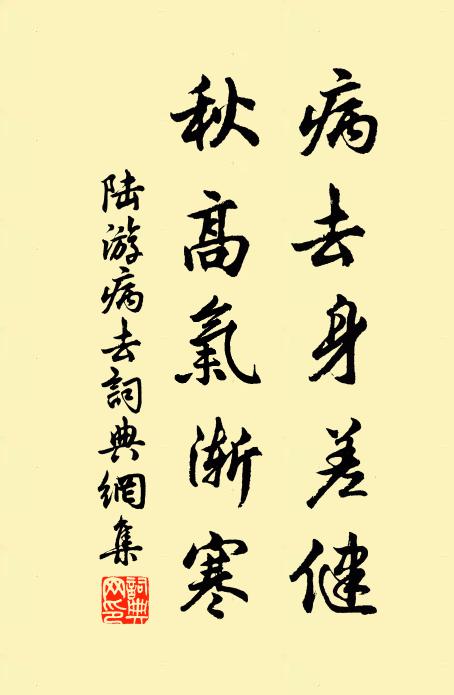 病去身差健
秋高氣漸寒
陆游病去詞典網集
詞典网印